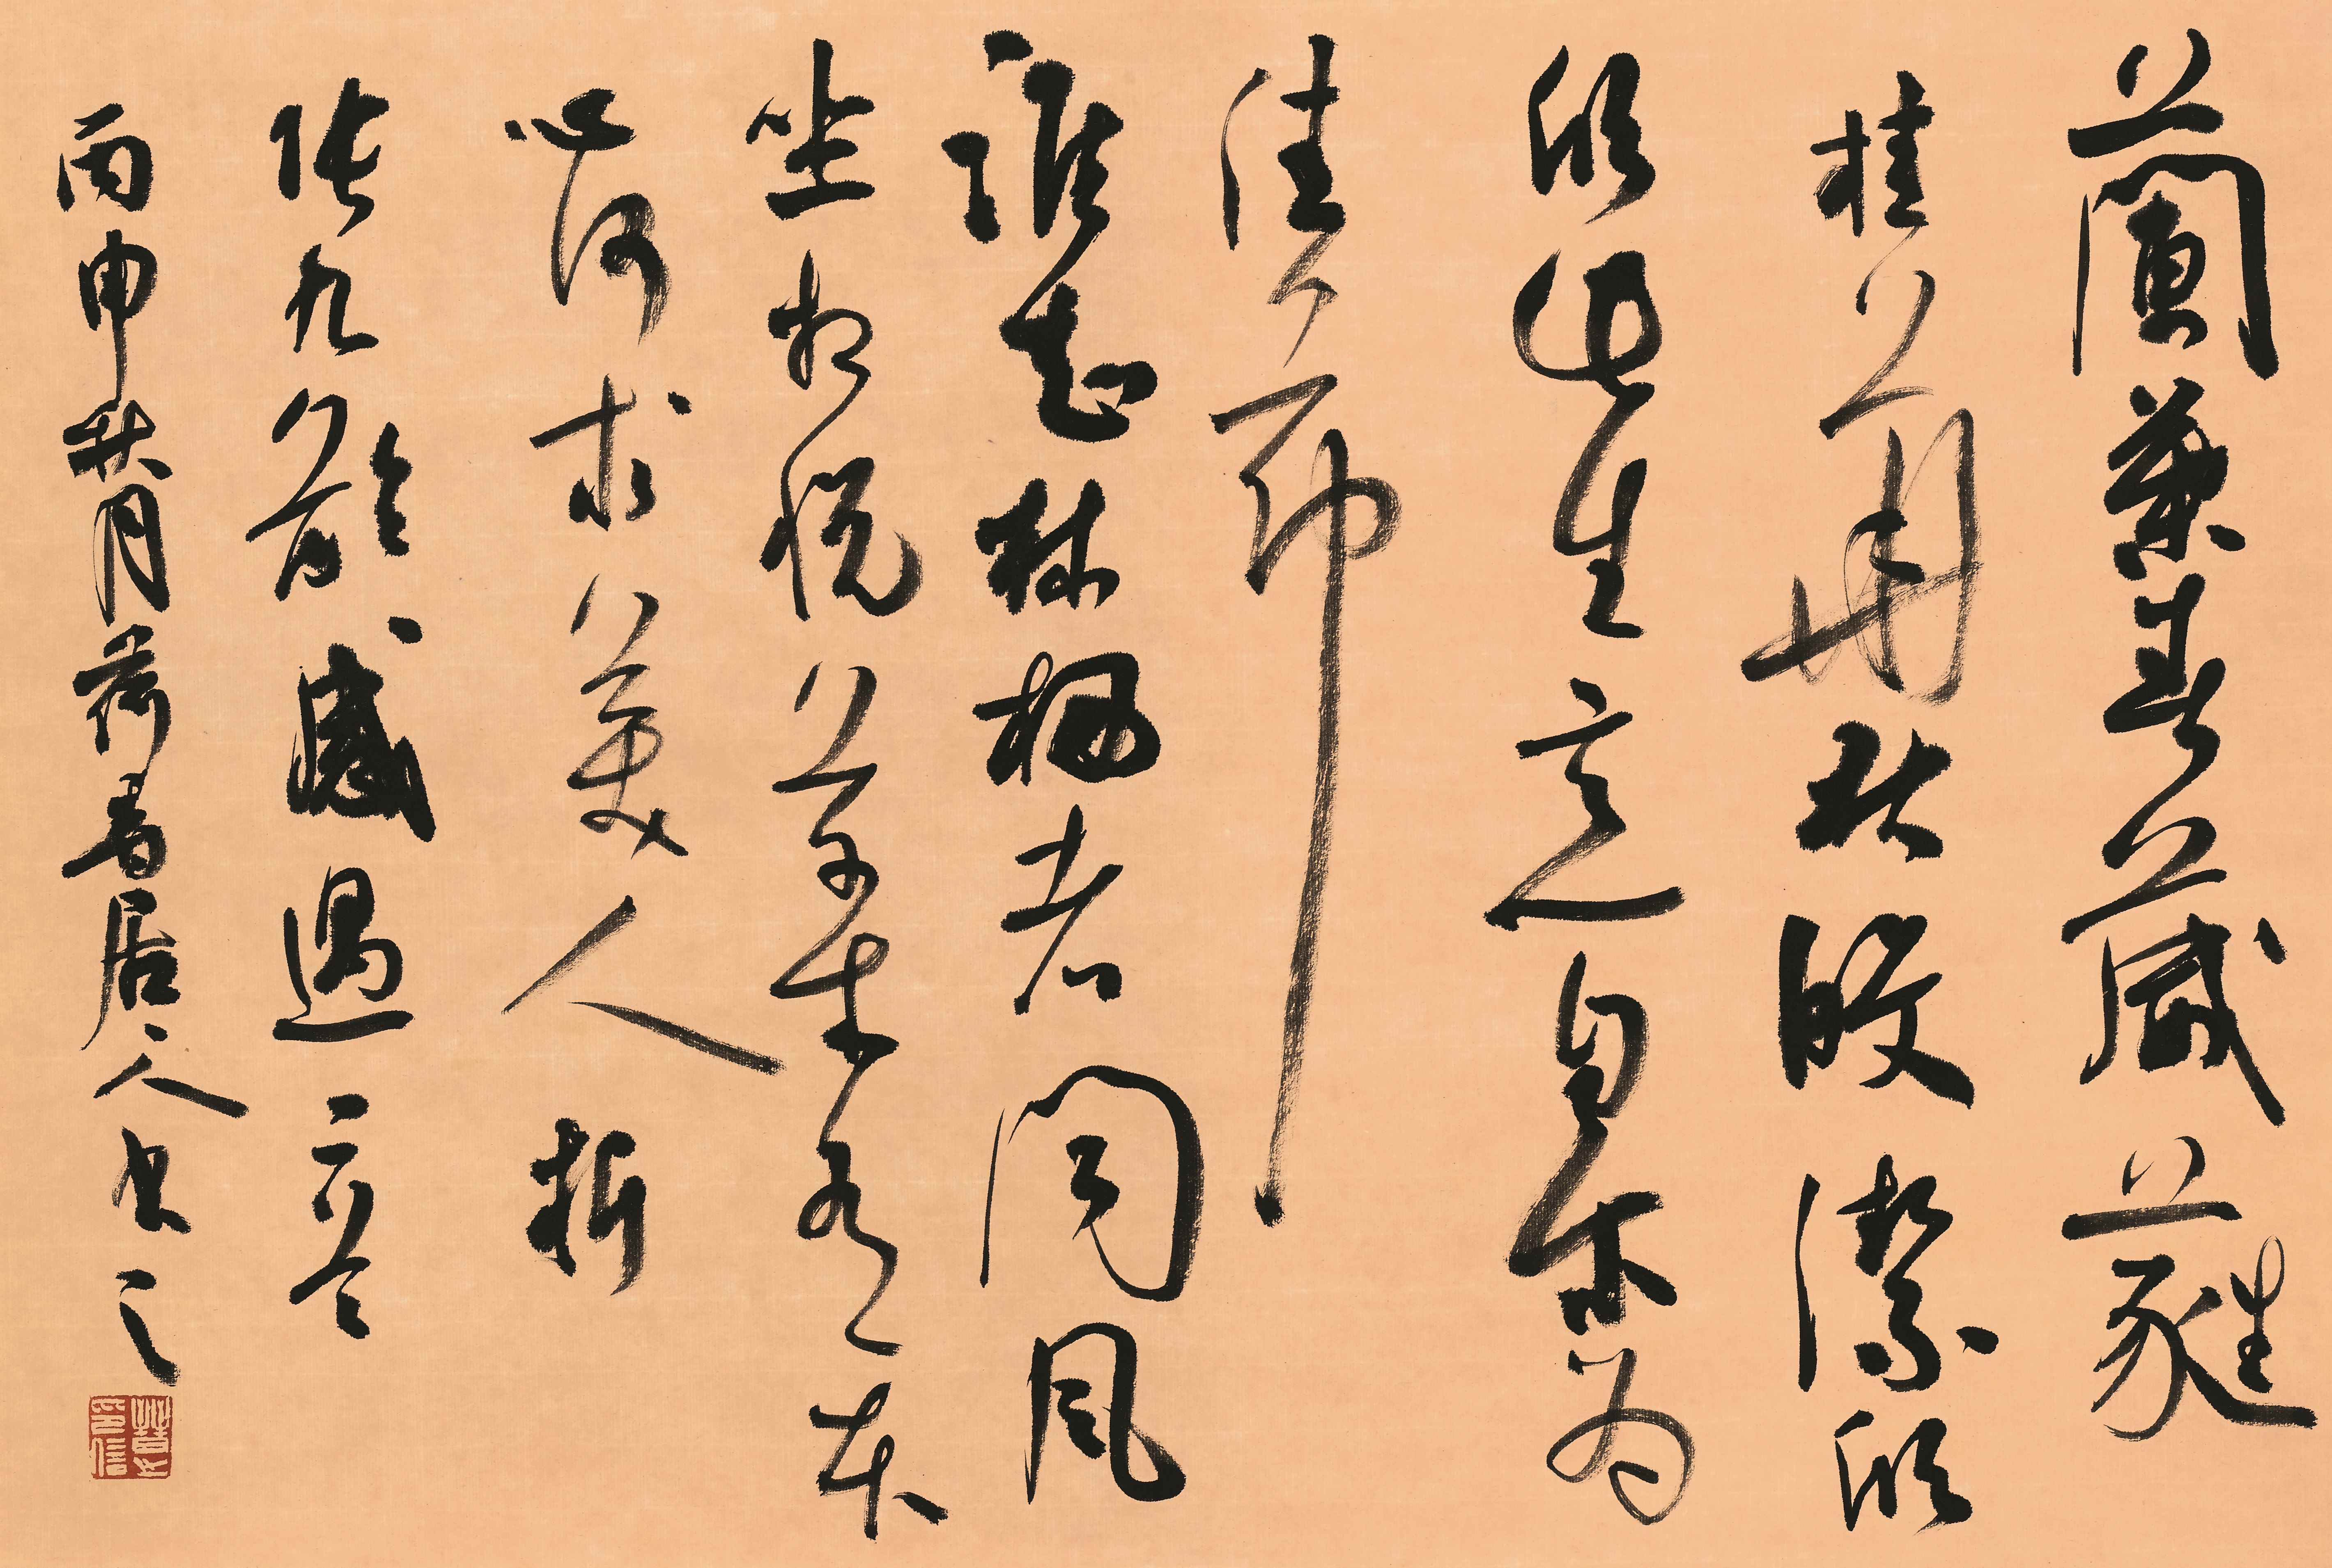 蘭葉春葳蕤
桂華秋皎潔欣
欣此生意自爾為
佳節
誰知林棲者聞風
坐相悅草木有本
心何求美人折
張九齡感遇一首
丙申秋月荷香居人書之